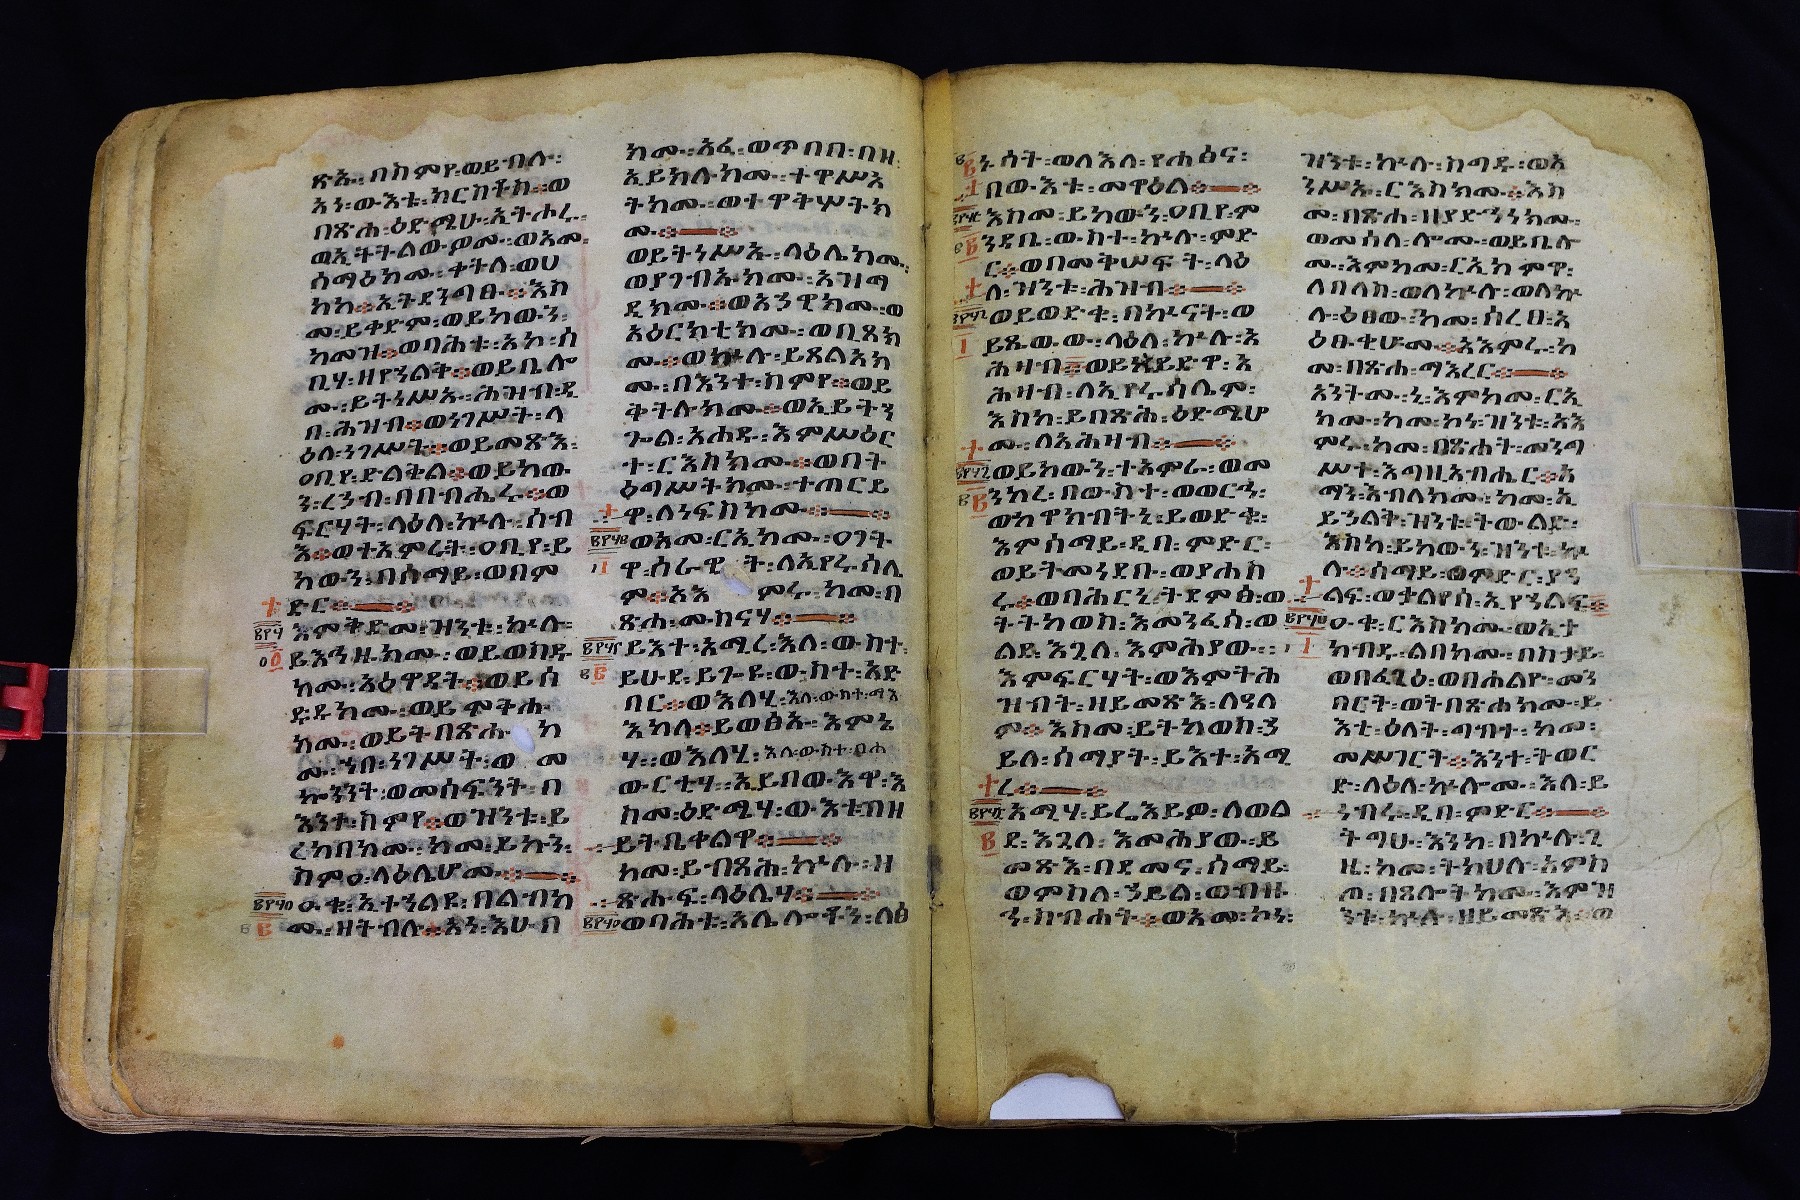 ጽኡ፡ በስምየ፡ ወይብሉ፡
አነ፡ ውእቱ፡ ክርስቶስ፡ ወ
በጽሐ፡ ዕድሜሁ፡ ኢትሖሩ፡
ወኢትትልውዎሙ፡ ወአመ፡
ሰማዕክሙ፡ ቀትለ፡ ወሀ
ከከ፡ ኢትደንግፁ፡ እስ
መ፡ ይቀድም፡ ወይከውን፡
ከመዝ፡ ወባሕቱ፡ አኮ፡ ሰ
ቤሃ፡ ዘየኀልቅ፡ ወይቤሎ
ሙ፡ ይትነሥእ፡ ሕዝብ፡ ዲ
በ፡ ሕዝብ፡ ወነገሥት፡ ላ
ዕለ፡ ነገሥት፡ ወይመጽእ፡
ዐቢይ፡ ድልቅልቅ፡ ወይከው
ን፡ ረኀብ፡ በበብሔሩ፡ ወ
ፍርሃት፡ ላዕለ፡ ኵሉ፡ ሰብ
እ፡ ወተአምረት፡ ዐቢይ፡ ይ
ከውን፡ በሰማይ፡ ወበም
ድር፡
እምቅድመ፡ ዝንቱ፡ ኵሉ፡
ይእኅዙክሙ፡ ወይወስዱ
ክሙ፡ አዕዋዳት፡ ወይሰ
ድዱክሙ፡ ወይሞቅሑ
ክሙ፡ ወይትበጽሑ ክ
ሙ፡ ኀበ፡ ነገሥት፡ ወ መ
ኳንንት፡ ወመሰፍንት፡ በ
እንተ፡ ስምየ፡ ወዝንቱ፡ ይ
ረክበክሙ፡ ከመ፡ ይኩን፡
ስምዐ፡ ላዕሌሆሙ፡
ዑቁ፡ ኢተኀልዩ፡ በልብክ
ሙ፡ ዘትብሉ፡ አነ፡ እሁብ
ክሙ፡ አፈ፡ ወጥበበ፡ በዘ
ኢይክሉክሙ፡ ተዋሥኦ
ትክሙ፡ ወተዋትሦትክ
ሙ፡
ወይትነሥኡ፡ ላዕሌክሙ፡
ወያገብኡክሙ፡ አዝማ
ዲክሙ፡ ወአኀዊክሙ፡ ወ
አዕርክቲክሙ፡ ወቢጸክ
ሙ፡ ወኵሉ፡ ይጸልአክ
ሙ፡ በእንተ፡ ስምየ፡ ወይ
ቅትሉክሙ፡ ወኢይትኀ
ጐል፡ አሐዱ፡ እምሥዕር
ተ፡ ርእስክሙ፡ ወበት
ዕግሥትክሙ፡ ተጠርይ
ዋ፡ ለነፍስክሙ፡
ወአመ፡ ርኢክሙ፡ ዐገት
ዋ፡ ሰራዊት፡ ለኢየሩሳሌ
ም፡ አእ ምሩ፡ ከመ፡ በ
ጽሐ፡ ሙስናሃ፡
ይእተ፡ አሚረ፡ እለ፡ ውስተ፡
ይሁዳ፡ ይጕየዩ፡ ውስተ፡ አድ
ባር፡ ወእለሂ፡ እለ፡ ውስተ፡ ማእ
እከላ፡ ይወፅኡ፡ እምኔ
ሃ፡ ወእለሂ፡ እለ፡ ውስተ፡ በሐ
ውርቲሃ፡ ኢይበውእዋ፡ እ
ስመ፡ ዕድሜሃ፡ ውእቱ፡ በዘ
ይትቤቀልዋ፡
ከመ፡ ይብጻሕ፡ ኵሉ፡ ዘ
ጽሑፍ፡ ላዕሌሃ፡
ወባሕቱ፡ አሌሎቶን፡ ለፅ
ኑሳት፡ ወለእለ፡ የሐፅና፡
በውእቱ፡ መዋዕል፡
እስመ፡ ይከውን፡ ዐቢይ፡ ም
ንዳቤ፡ ውስተ፡ ኵሉ፡ ምድ
ር፡ ወበመቅሠፍት፡ ላዕ
ለ፡ ዝንቱ፡ ሕዝብ፡
ወይወድቁ፡ በኵናት፡ ወ
ይጼወው፡ ላዕለ፡ ኵሉ፡ አ
ሕዛብ፡ ወይከይድዋ፡ አ
ሕዛብ፡ ለኢየሩሳሌም፡
እስከ፡ ይበጽሕ፡ ዕድሜሆ
ሙ፡ ለአሕዛብ፡
ወይከውን፡ ተአምራ፡ ወመ
ንክረ፡ በውስተ፡ ወወርኅ፡
ወከዋክብትኒ፡ ይወድቁ፡
እምሰማይ፡ ዲበ፡ ምድር፡
ወይትመነደቡ፡ ወያሐስ
ሩ፡ ወባሕርኒ፡ ትደምፅ፡ ወ
ትትከወስ፡ እመንፈሰ፡ ወ
ልደ፡ እጓለ፡ እምሕያው፡
እምፍርሃት፡ ወእምትሕ
ዝብት፡ ዘይመጽእ፡ ለዓለ
ም፡ እስመ፡ ይትከወስ፡ ኀ
ይለ፡ ሰማያት፡ ይእተ፡ አሚ
ረ፡
አሜሃ፡ ይሬእይዎ፡ ለወል
ደ፡ እጓለ፡ እመሕያው፡ ይ
መጽእ፡ በደመና፡ ሰማይ፡
ወምስለ፡ ኀይል፡ ወብዙ
ኅ፡ ስብሐት፡ ወአመ፡ ኮነ፡
ዝንቱ፡ ኵሉ፡ ከግዱ፡ ወአ
ንሥኡ፡ ርእስክሙ፡ እስ
መ፡ በጽሐ፡ ዘያድኅነክሙ፡
ወመሰለ፡ ሎሙ፡ ወይቤሎ
ሙ፡ እምከመ፡ ርኢክምዋ፡
ለበለስ፡ ወለኵሉ፡ ወለኵ
ሉ፡ ዕፀው፡ ከመ፡ ሰረፀ፡ አ
ዕፁቂሆሙ፡ አእምሩ፡ ከ
መ፡ በጽሐ፡ ማእረር፡
አንትሙኒ፡ እምከመ፡ ርኢ
ክሙ፡ ከመ፡ ኮነ፡ ዝንቱ፡ አእ
ምሩ፡ ከመ፡ በጽሐት፡ መንግ
ሥተ፡ እግዚአብሔር፡ አ
ማን፡ እብለክሙ፡ ከመ፡ ኢ
ይኀልቅ፡ ዝንቱ፡ ትውልድ፡
እስከ፡ ይከውን፡ ዝንቱ፡ ኵ
ሉ፡ ሰማይ፡ ወምድር፡ ያኀ
ልፍ፡ ወቃልየሰ፡ ኢየኀልፍ፡
ዑቁ፡ ርእስክሙ፡ ወኢታ
ክብዱ፡ ልበክሙ፡ በስታይ፡
ወበፈጊዕ፡ ወበሐልዮ፡ መን
ባርት፡ ወትበጽሐክሙ፡ ይ
እቲ፡ ዕለት፡ ግብተ፡ ከመ፡
መሥገርት፡ እንተ፡ ትወር
ድ፡ ላዕለ፡ ኵሎሙ፡ እለ፡ ይ
ነብሩ፡ ዲበ፡ ምድር፡
ትግሁ፡ እንከ፡ በኵሉ፡ ጊ
ዜ፡ ከመ፡ ትክሀሉ፡ አምስ
ጦ፡ በጸሎትክሙ፡ እምዝ
ንቱ፡ ኵሉ፡ ዘይመጽእ፡ ወ